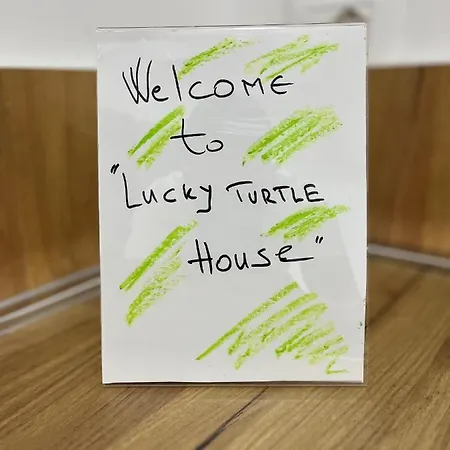 Welcome
to
"Lucky Turtle
House"